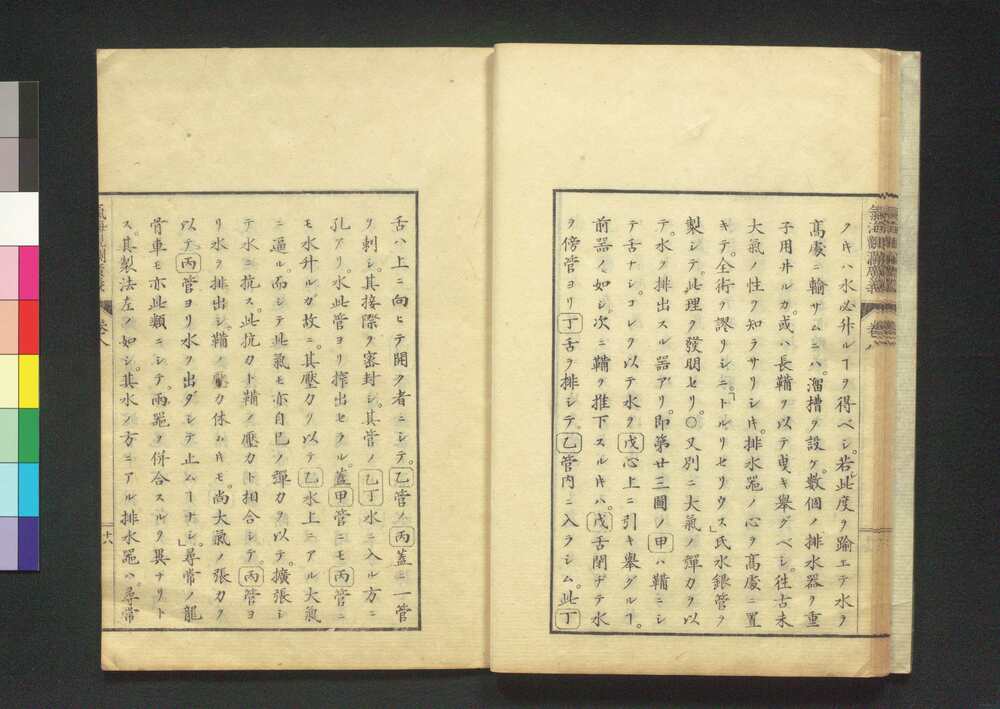 氣海觀瀾廣義 卷八
ノキハ水必升ルヿヲ得ベシ。若此度ヲ踰エテ水ヲ
高處ニ輸サムニハ。溜槽ヲ設ケ。數個ノ排水器ヲ重
子用井ルカ。或ハ長鞴ヲ以テ曳キ舉グベシ。往古未
大氣ノ性ヲ知ラサリシ𪜈。排水器ノ心ヲ高處ニ置
キテ。全術ヲ謬リシニ。トルリセリウス」氏水銀管ヲ
製シテ。此理ヲ發明セリ。○又別ニ大氣ノ彈力ヲ以
テ。水ヲ排出スル器アリ。即第廿三圖ノ甲ハ鞴ニシ
テ舌ナシ。コレヲ以テ水ヲ戊心上ニ引キ舉グルヿ。
前器ノ如シ。次ニ鞴ヲ推下スル𪜈ハ。戊舌閉ヂテ水
ヲ傍管ヨリ丁舌ヲ排シテ。乙管内ニ入ラシム。此丁
舌ハ上ニ向ヒテ開ク者ニシテ。乙管ノ丙蓋ニ一管
ヲ刺シ。其接際ヲ密封シ。其管ノ乙丁水ニ入ル方ニ
孔アリ。水此管ヨリ搾出セラル。蓋甲管ニモ丙管ニ
モ水升ルガ故ニ。其壓力ヲ以テ乙水上ニアル大氣
ニ逼ル。而シテ此氣モ亦自己ノ彈力ヲ以テ。擴張シ
テ水ニ抗ス。此抗力ト鞴ノ壓力ト相合シテ。丙管ヨ
リ水ヲ排出シ。鞴ノ壓力休ム𪜈モ。尚大氣ノ張力ヲ
以テ丙管ヨリ水ヲ出ダシテ止ムヿナシ。」尋常ノ龍
骨車モ亦此類ニシテ。兩器ヲ併合スルヲ異ナリト
ス。其製法左ノ如シ。其水ノ方ニアル排水器ハ。尋常
卷八
十六